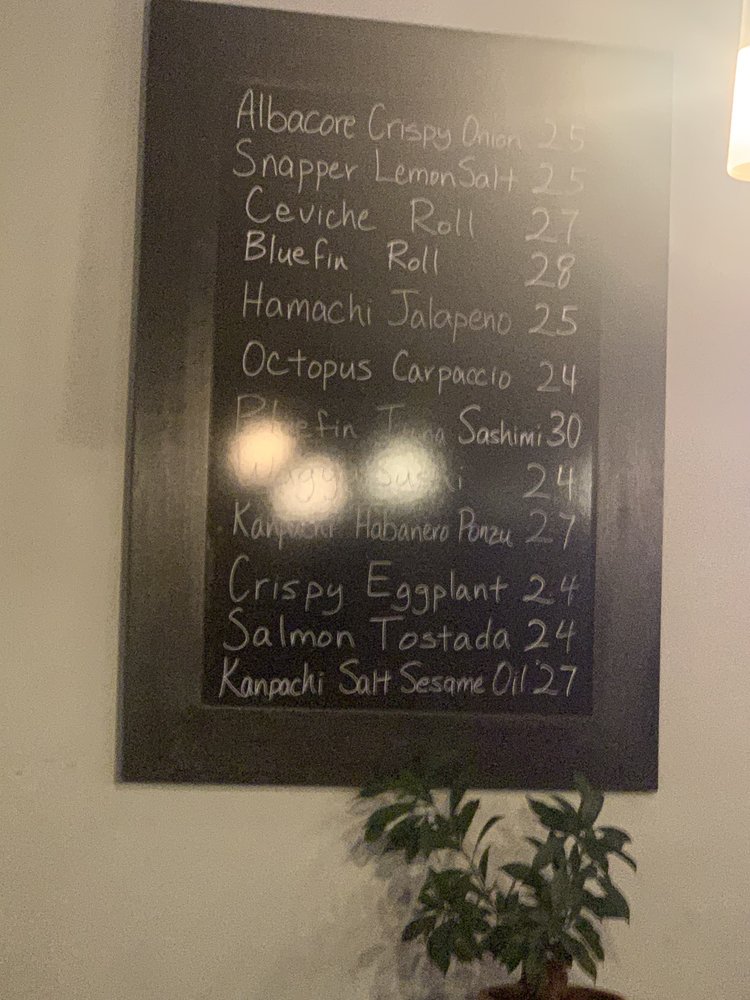 Albacore Crispy Onion 25
Snapper Lemon Salt 25
Ceviche Roll 27
Bluefin Roll 28
Hamachi Jalapeno 25
Octopus Carpaccio 24
Bluefin Tuna Sashimi 30
Wagyu Sushi 24
Kanpachi Habanero Ponzu 27
Crispy Eggplant 24
Salmon Tostada 24
Kanpachi Salt Sesame Oil 27